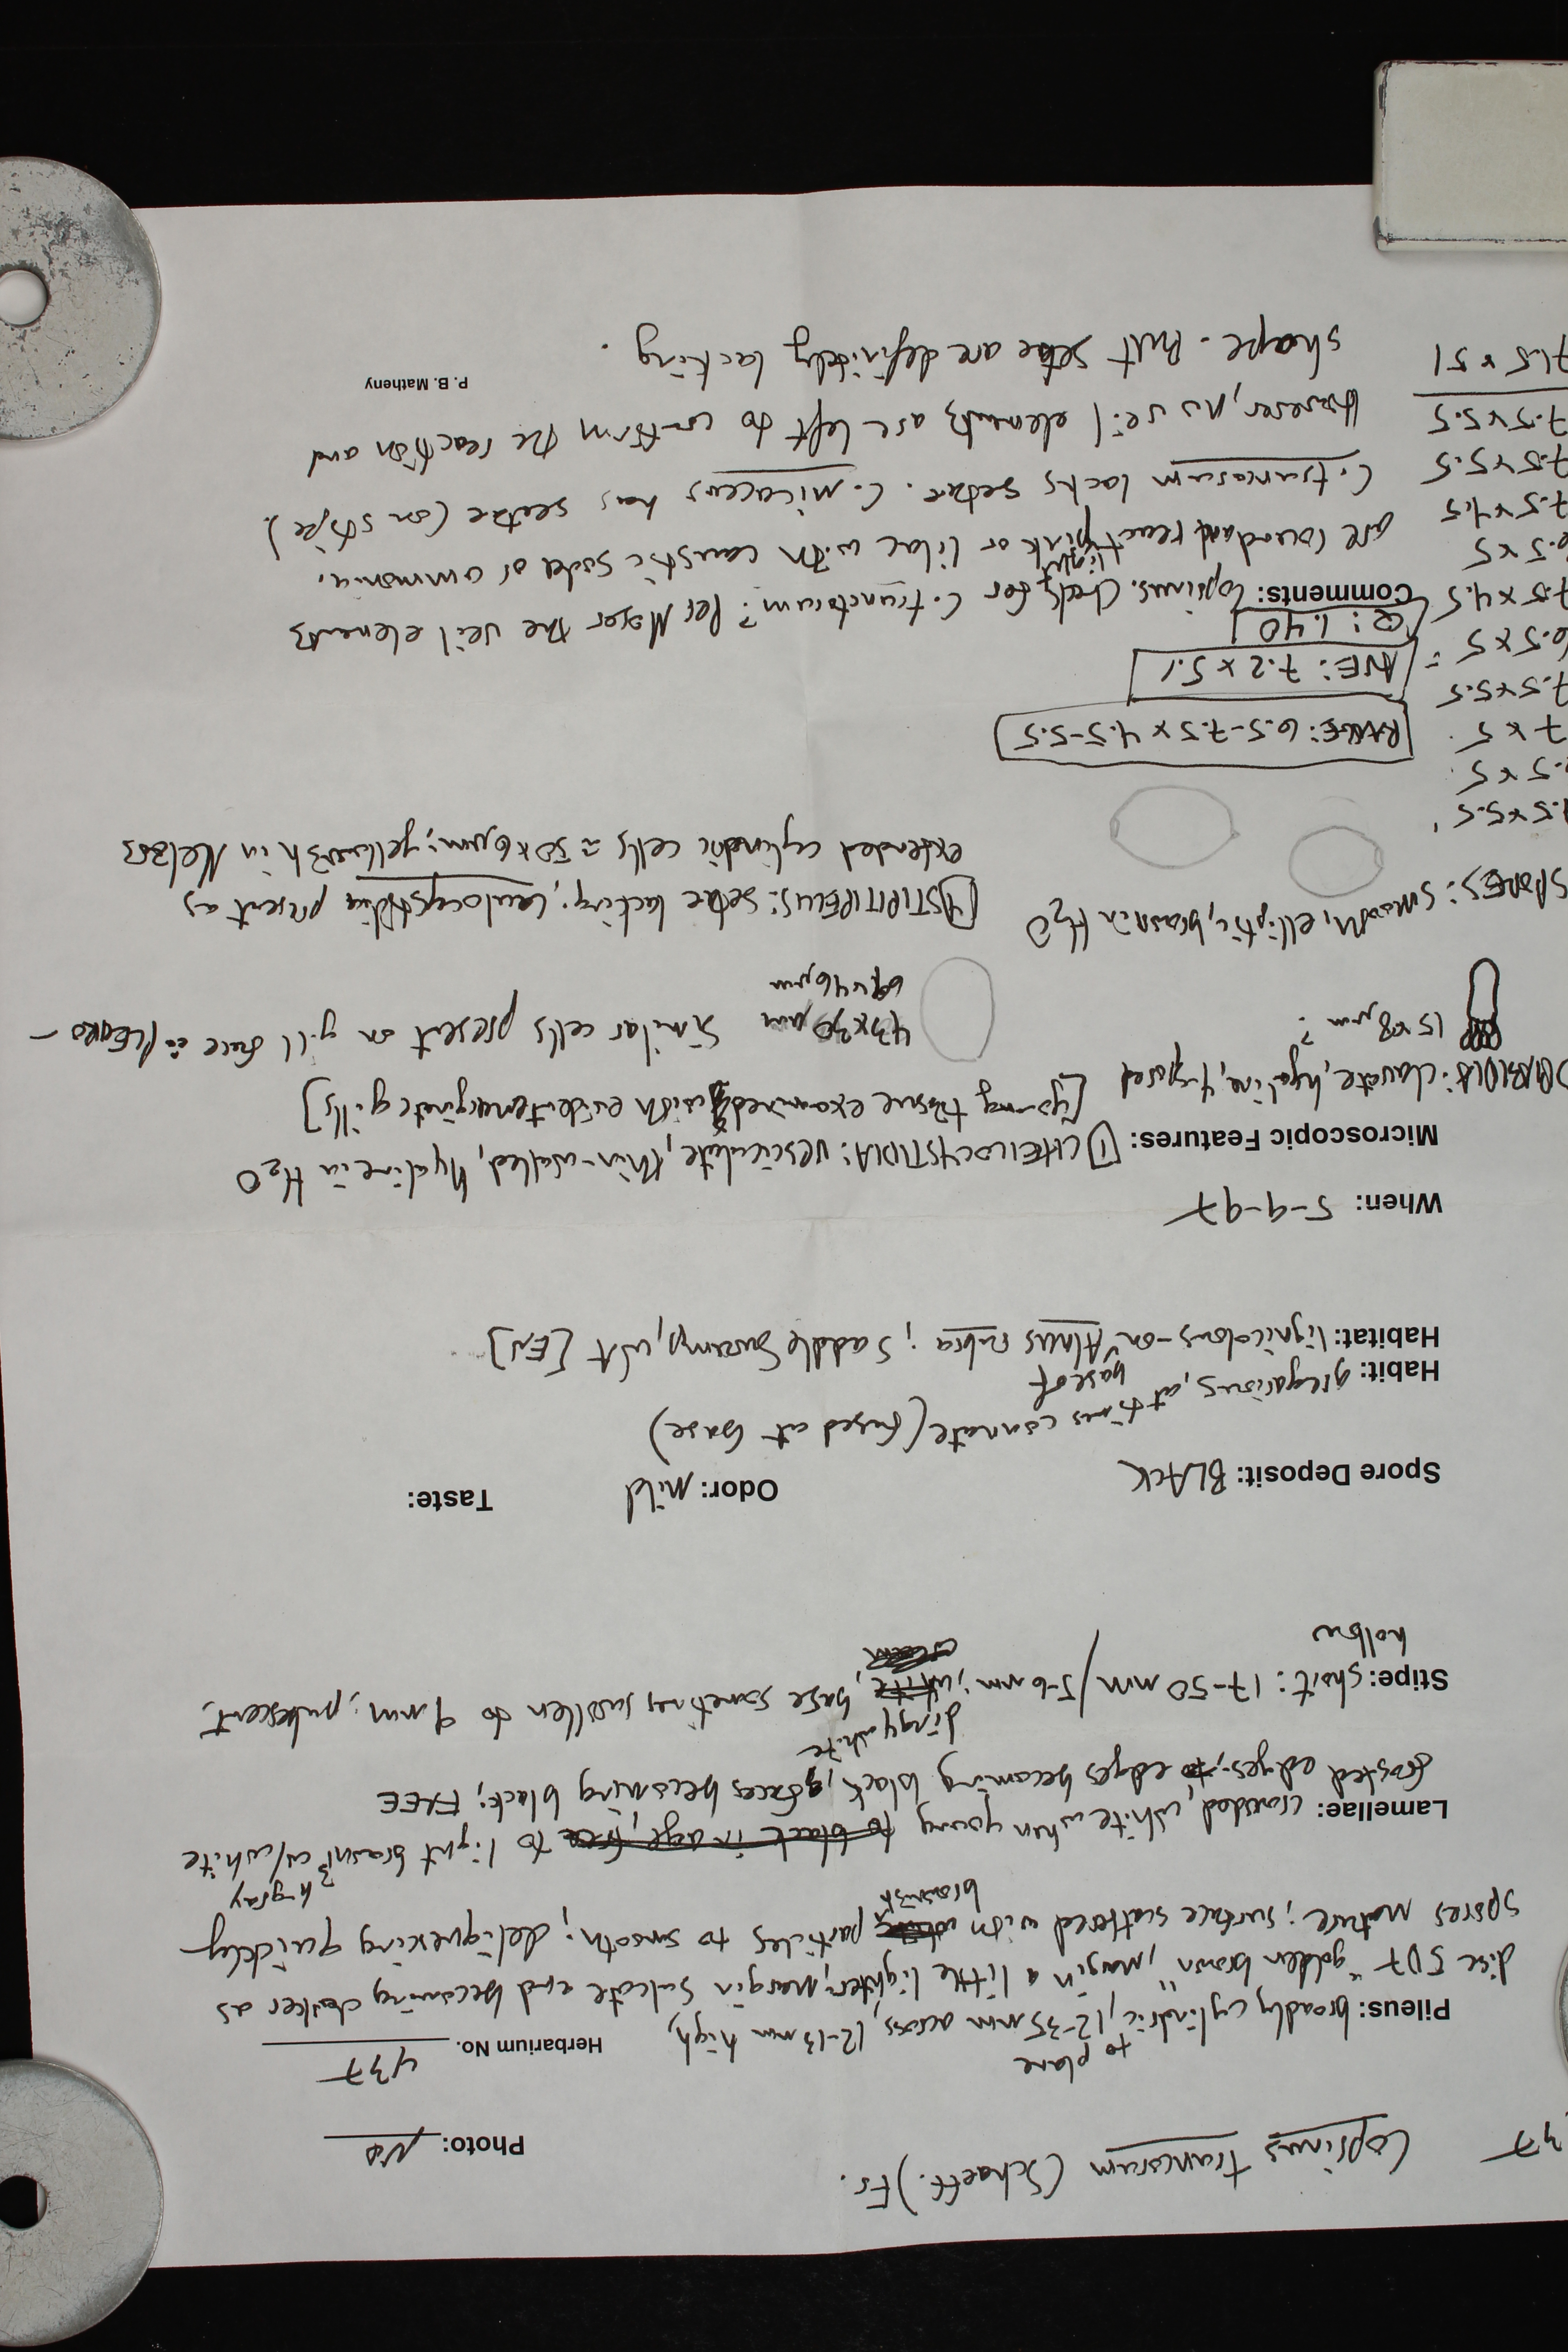 37 Coprinus truncorum (Schaeff.) Fr.
Photo: No
Herbarium No. 437
to plane
Pileus: broadly cylindric, 12-35 mm across, 12-13 mm high,
disc 5D7 "golden brown", margin a little lighter, margin sulcate and becoming darker as
spores mature; surface scattered with particles to smooth; deliquescing quickly
brownish
h-gray
Lamellae: crowded, white when young to black in age, free to light brown w/white
frosted edges; edges becoming black, faces becoming black; FREE
dingy white
Stipe: short: 17-50 mm / 5-6 mm; white, base sometimes swollen to 9 mm; pubescent,
hollow
Spore Deposit: BLACK Odor: Mild Taste:
Habit: gregarious, at times connate (fused at base)
base of
Habitat: lignicolous - on Alnus rubra; Saddle Swamp, WT [EN]
When: 5-9-97
Microscopic Features: 1 CHEILOCYSTIDIA: vesiculate, thin-walled, hyaline in H2O
[young tissue examined with evident emarginate gills]
BASIDIA: clavate, hyaline, 4-spored
15 x 8 µm ?
43 x 30 µm
69 x 46 µm
similar cells present on gill face ∴ PLEURO-
SPORES: smooth, elliptic, brown in H2O
STIPITIPELLIS: setae lacking; caulocystidia present as
extended cylindric cells ≈ 50 x 6 µm; yellowish in Melzers
.5 x 5.5
.5 x 5
7 x 5
7.5 x 5.5
6.5 x 5
7.5 x 4.5
6.5 x 5
7.5 x 4.5
7.5 x 5.5
7.5 x 5.5
71.5 x 51
RANGE: 6.5-7.5 x 4.5-5.5
= AVE: 7.2 x 5.1
Q: 1.40
Comments: Coprinus. Check for C. truncorum? Per Moser the veil elements
light
are round and react pink or lilac with caustic soda or ammonia.
C. truncorum lacks setae. C. micaceus has seetae (on stipe)
However, no veil elements are left to confirm the reaction and
shape. But setae are definitely lacking.
P. B. Matheny